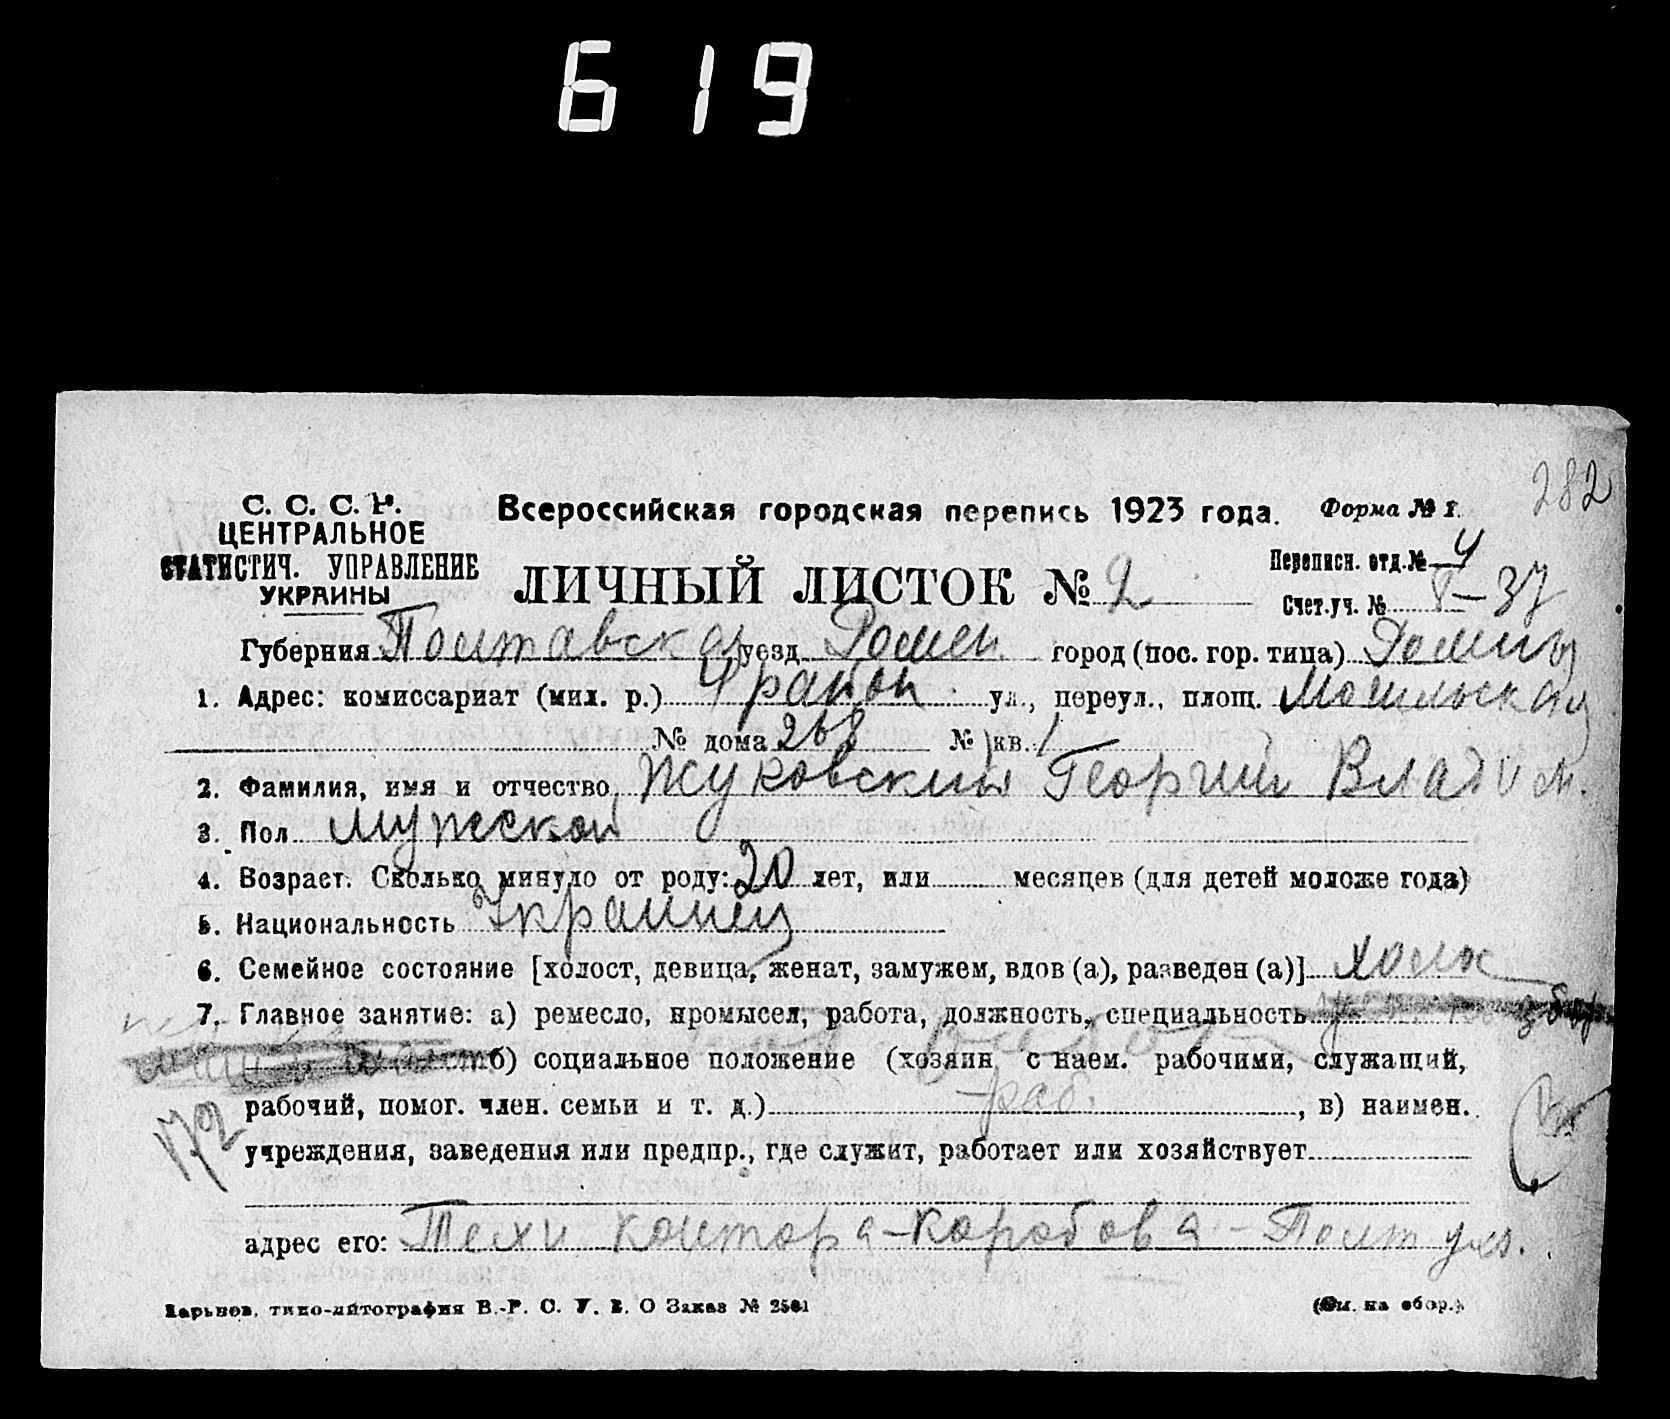 619
282
С. С. С. Р.
ЦЕНТРАЛЬНОЕ
СТАТИСТИЧ. УПРАВЛЕНИЕ
УКРАИНЫ
Всероссийская городская перепись 1923 года. Форма № 1.
ЛИЧНЫЙ ЛИСТОК № 2
Переписн. отд. № 4
Счет. уч. № 37
Губерния Полтавская уезд Ромен. город (пос. гор. типа) Ромны
1. Адрес: комиссариат (мил. р.) 4 район ул., переул., площ.
№ дома 268 № кв. 1
2. Фамилия, имя и отчество Жуковский Георгий Владим.
3. Пол мужской
4. Возраст. Сколько минуло от роду: 20 лет, или месяцев (для детей моложе года)
5. Национальность Украинец
6. Семейное состояние [холост, девица, женат, замужем, вдов (а), разведен (а)] холост
7. Главное занятие: а) ремесло, промысел, работа, должность, специальность
б) социальное положение (хозяин с наем. рабочими, служащий,
рабочий, помог. член. семьи и т. д.) раб. , в) наимен.
учреждения, заведения или предпр., где служит, работает или хозяйствует
адрес его: Техн контора - Коробова - Полт ул.
Харьков, типо-литография В.-Р. С. У. В. О Заказ № 2501
(См. на обор.).